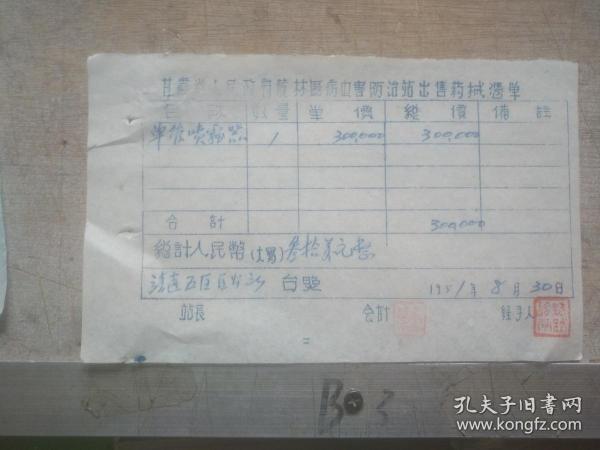 甘肅省人民政府農林廳病虫害防治站出售葯械憑單
名稱 数量 單價 總價 備註
單管噴霧器 1 300,000 300,000
合計 300,000
總計人民幣(大寫)叁拾萬元整
台照 1951年8月30日
站長 会計 経手人
B 3
孔夫子旧书网
www.kongfz.com